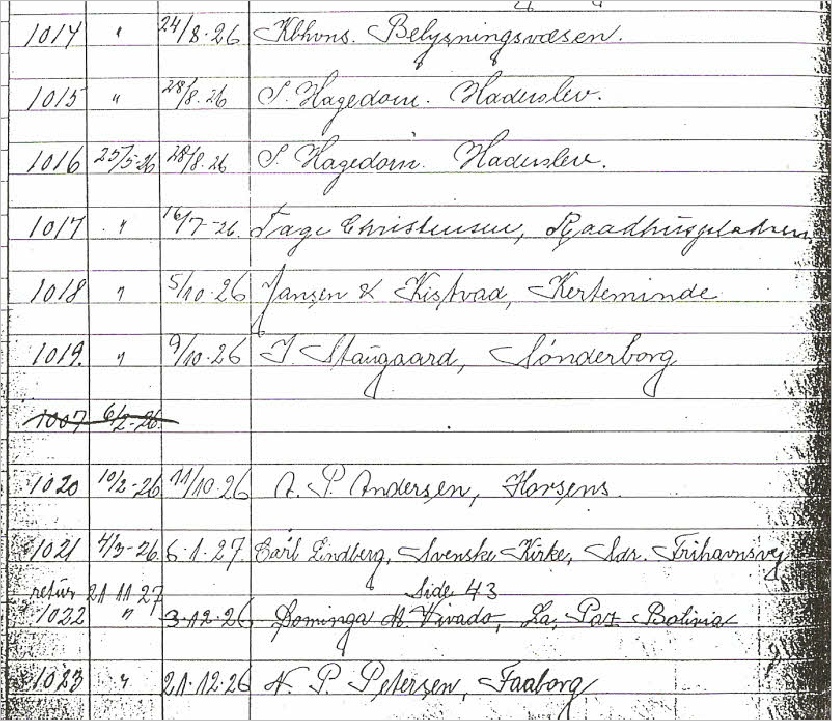 1014 " 24/8-26 Kbhvns. Belysningsvæsen.
1015 " 28/8-26 S. Hagedorn. Haderslev.
1016 25/5-26 28/8-26 S. Hagedorn. Haderslev.
1017 " 16/7-26. Tage Christensen, Raadhuspladsen.
1018 " 5/10-26 Jansen & Kistvad, Kerteminde
1019. " 9/10-26 J Staugaard, Sönderborg
1007 6/2-26.
1020 10/2-26 11/10-26 A. P. Andersen, Horsens.
1021 4/3-26. 6-1-27. Carl Lindberg, Svenske Kirke, Sdr. Frihavnsvej
retur 21 11 27 Side 43
1022 " 3-12-26 Dominga M. Vivado, La Paz Bolivia
1023 " 21-12-26 N. P. Petersen, Faaborg